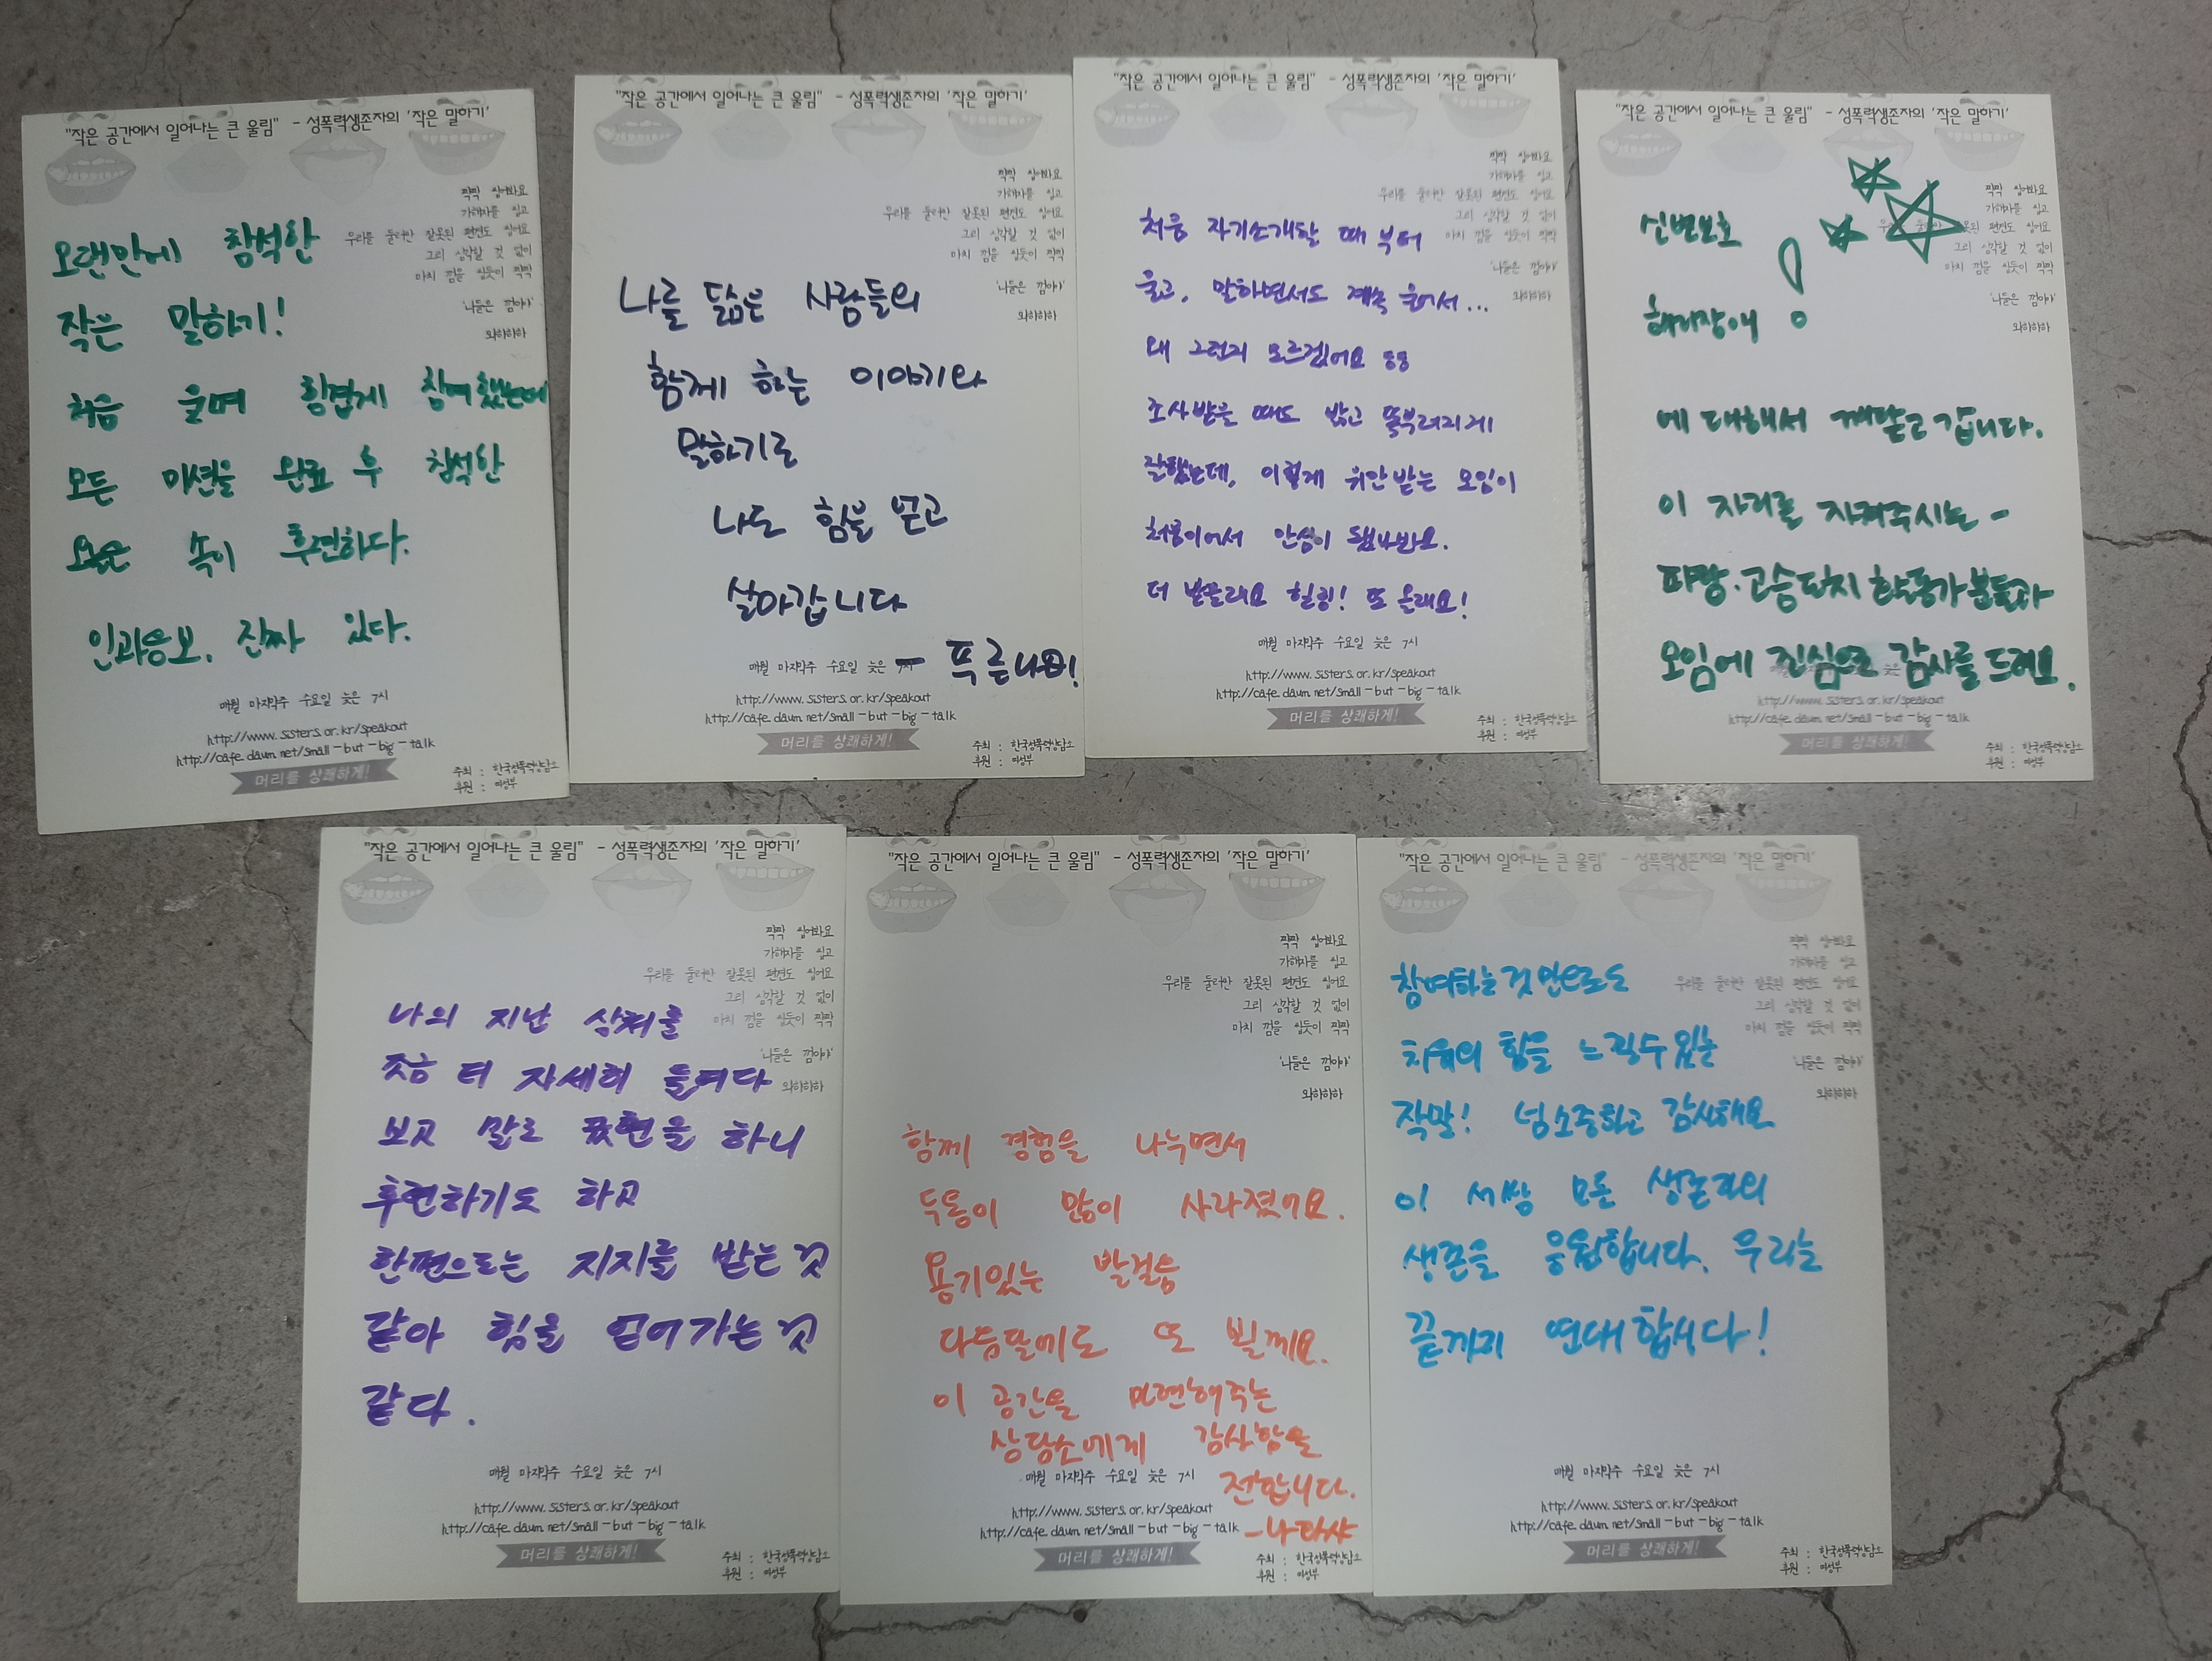 "작은 공간에서 일어나는 큰 울림" - 성폭력생존자의 '작은 말하기'
짝짝 씹어봐요
가해자를 씹고
우리를 둘러싼 잘못된 편견도 씹어요
그리 심각할 것 없이
마치 껌을 씹듯이 짝짝
'니들은 껌이야'
와하하하
오랜만에 참석한
작은 말하기!
처음 울며 힘겹게 참여했는데
모든 미션을 완료 후 참석한
오늘은 속이 후련하다.
인과응보. 진짜 있다.
매월 마지막주 수요일 늦은 7시
http://www.sisters.or.kr/speakout
http://cafe.daum.net/small-but-big-talk
머리를 상쾌하게!
주최 : 한국성폭력상담소
후원 : 여성부
"작은 공간에서 일어나는 큰 울림" - 성폭력생존자의 '작은 말하기'
짝짝 씹어봐요
가해자를 씹고
우리를 둘러싼 잘못된 편견도 씹어요
그리 심각할 것 없이
마치 껌을 씹듯이 짝짝
'니들은 껌이야'
와하하하
나를 닮은 사람들의
함께 하는 이야기와
말하기로
나도 힘을 얻고
살아갑니다
- 푸른나비!
매월 마지막주 수요일 늦은 7시
http://www.sisters.or.kr/speakout
http://cafe.daum.net/small-but-big-talk
머리를 상쾌하게!
주최 : 한국성폭력상담소
후원 : 여성부
"작은 공간에서 일어나는 큰 울림" - 성폭력생존자의 '작은 말하기'
짝짝 씹어봐요
가해자를 씹고
우리를 둘러싼 잘못된 편견도 씹어요
그리 심각할 것 없이
마치 껌을 씹듯이 짝짝
'니들은 껌이야'
와하하하
처음 자기소개할 때 부터
울고, 말하면서도 계속 울어서...
왜 그런지 모르겠어요 ㅎㅎ
조사받을 때도 밝고 똑부러지게
잘했는데, 이렇게 위안받는 모임이
처음이어서 안심이 됐나봐요.
더 받을래요 힐링! 또 올래요!
매월 마지막주 수요일 늦은 7시
http://www.sisters.or.kr/speakout
http://cafe.daum.net/small-but-big-talk
머리를 상쾌하게!
주최 : 한국성폭력상담소
후원 : 여성부
"작은 공간에서 일어나는 큰 울림" - 성폭력생존자의 '작은 말하기'
짝짝 씹어봐요
가해자를 씹고
우리를 둘러싼 잘못된 편견도 씹어요
그리 심각할 것 없이
마치 껌을 씹듯이 짝짝
'니들은 껌이야'
와하하하
신변보호
해리장애 !
에 대해서 깨닫고 갑니다.
이 자리를 지켜주시는 -
파랑·고슴도치 활동가분들과
모임에 진심으로 감사를 드려요.
http://www.sisters.or.kr/speakout
http://cafe.daum.net/small-but-big-talk
머리를 상쾌하게!
주최 : 한국성폭력상담소
후원 : 여성부
"작은 공간에서 일어나는 큰 울림" - 성폭력생존자의 '작은 말하기'
짝짝 씹어봐요
가해자를 씹고
우리를 둘러싼 잘못된 편견도 씹어요
그리 심각할 것 없이
마치 껌을 씹듯이 짝짝
'니들은 껌이야'
와하하하
나의 지난 상처를
조금 더 자세히 들여다
보고 말로 표현을 하니
후련하기도 하고
한편으로는 지지를 받는 것
같아 힘을 얻어가는 것
같다.
매월 마지막주 수요일 늦은 7시
http://www.sisters.or.kr/speakout
http://cafe.daum.net/small-but-big-talk
머리를 상쾌하게!
주최 : 한국성폭력상담소
후원 : 여성부
"작은 공간에서 일어나는 큰 울림" - 성폭력생존자의 '작은 말하기'
짝짝 씹어봐요
가해자를 씹고
우리를 둘러싼 잘못된 편견도 씹어요
그리 심각할 것 없이
마치 껌을 씹듯이 짝짝
'니들은 껌이야'
와하하하
함께 경험을 나누면서
두통이 많이 사라졌어요.
용기있는 발걸음
다음달에도 또 뵐께요.
이 공간을 마련해주는
상담소에게 감사함을
전합니다.
- 나타샤
매월 마지막주 수요일 늦은 7시
http://www.sisters.or.kr/speakout
http://cafe.daum.net/small-but-big-talk
머리를 상쾌하게!
주최 : 한국성폭력상담소
후원 : 여성부
"작은 공간에서 일어나는 큰 울림" - 성폭력생존자의 '작은 말하기'
짝짝 씹어봐요
가해자를 씹고
우리를 둘러싼 잘못된 편견도 씹어요
그리 심각할 것 없이
마치 껌을 씹듯이 짝짝
'니들은 껌이야'
와하하하
참여하는것만으로도
치유의 힘을 느낄수 있는
작말! 넘 소중하고 감사해요
이 세상 모든 생존자의
생존을 응원합니다. 우리는
끝까지 연대합시다!
매월 마지막주 수요일 늦은 7시
http://www.sisters.or.kr/speakout
http://cafe.daum.net/small-but-big-talk
머리를 상쾌하게!
주최 : 한국성폭력상담소
후원 : 여성부